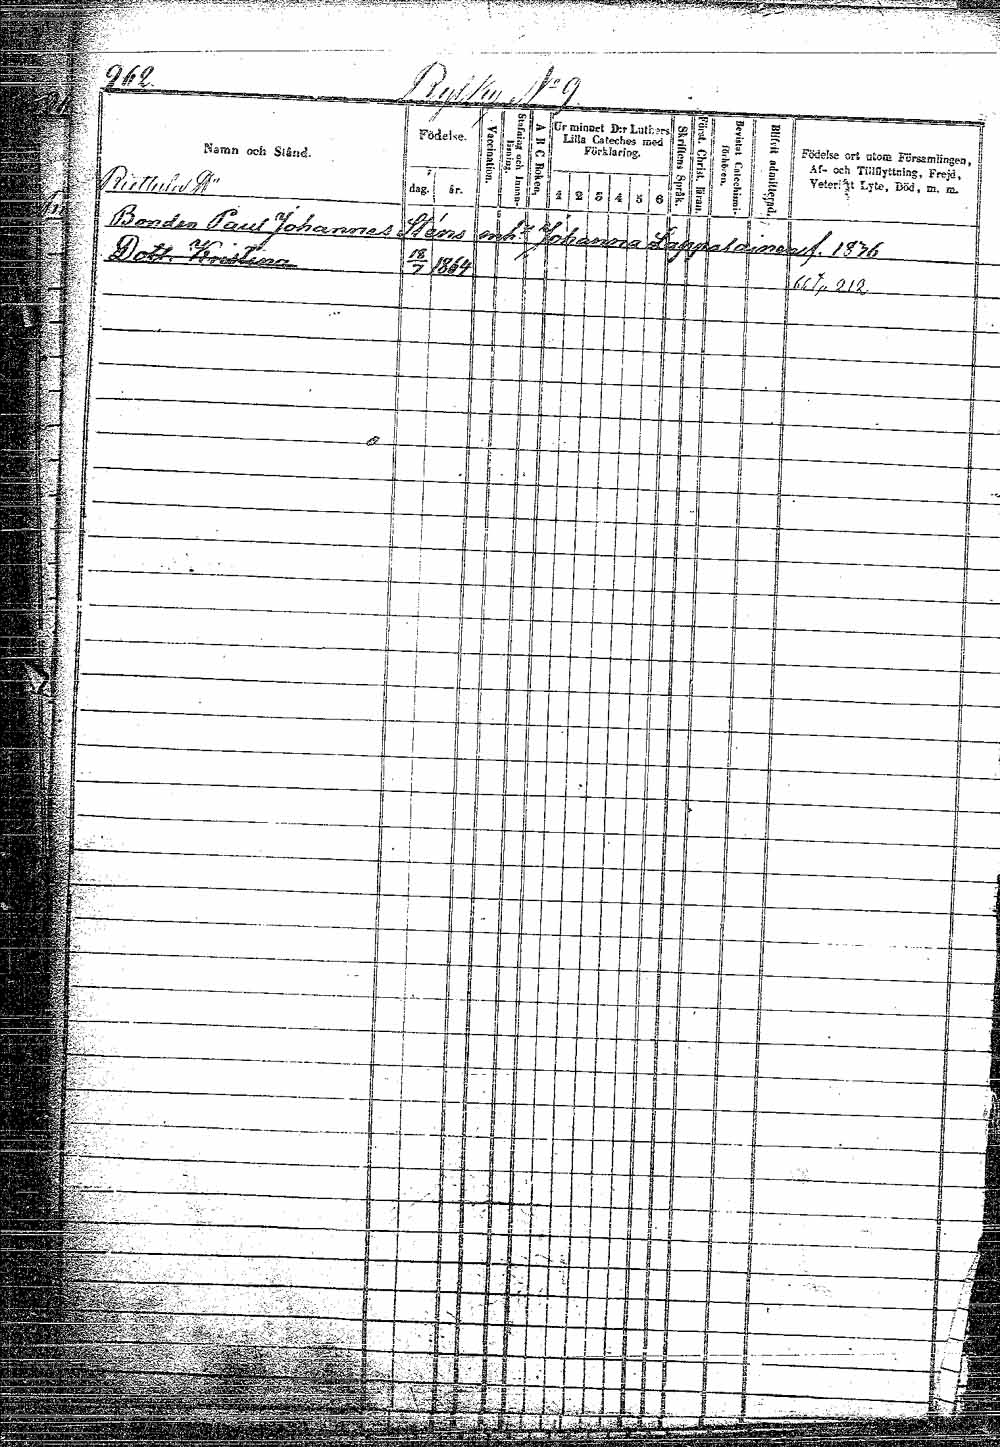 262.
Rysky N:o 9.
Namn och Stånd.
Födelse.
dag.
år.
Vaccination.
Stafning och Innan-
läsning.
A B C Boken.
Ur minnet D:r Luthers
Lilla Cateches med
Förklaring.
1 2 3 4 5 6
Skriftens Språk.
Först. Christ. läran.
Bevistat Catechismi-
förhören.
Blifvit admitterad.
Födelse ort utom Församlingen,
Af- och Tillflyttning, Frejd,
Lyte, Död, m. m.
Bonden Paul Johannes Sténs enk. Johanna f. 1836
Dott. Kristina 18/7 1864
212